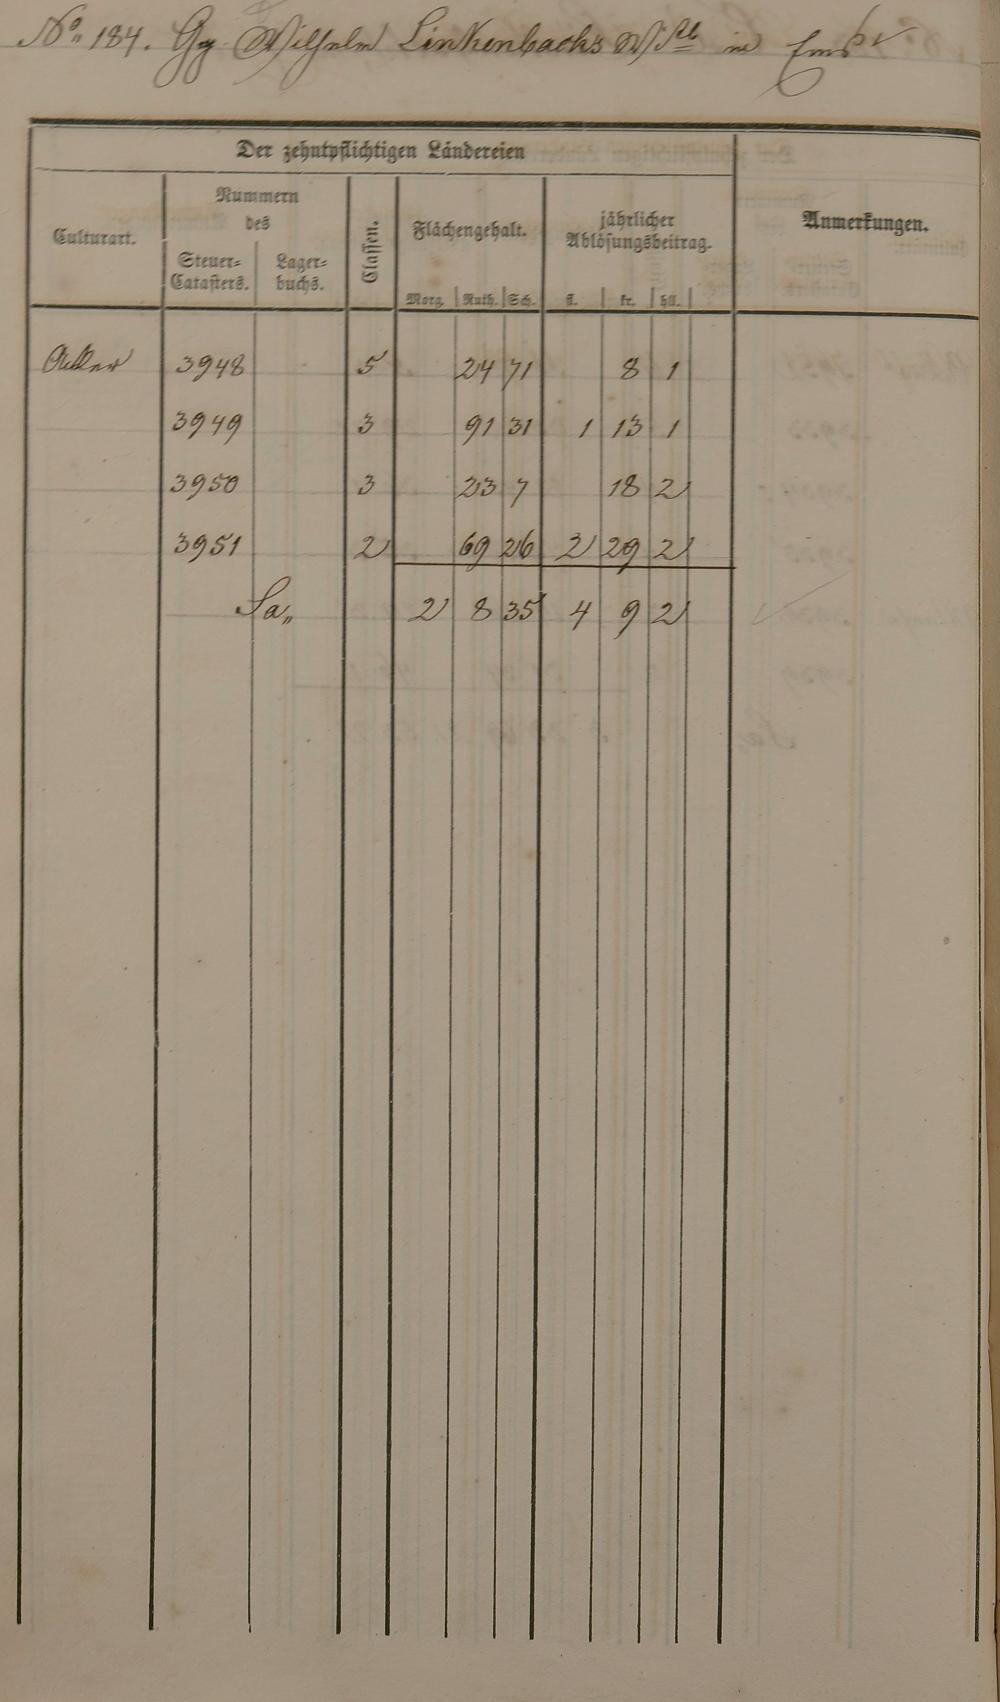 No. 184. Gg. Wilhelm Linkenbachs Wtb in Ems
Der zehntpflichtigen Ländereien
Culturart.
Nummern
des
Steuer-
Catasters.
Lager-
buchs.
Classen.
Flächengehalt.
Morg. Ruth. Sch.
jährlicher
Ablösungsbeitrag.
fl. kr. hll.
Anmerkungen.
Acker 3948 5 24 71 8 1
3949 3 91 31 1 13 1
3950 3 23 7 18 2
3951 2 69 26 2 29 2
Sa„ 2 8 35 4 9 2